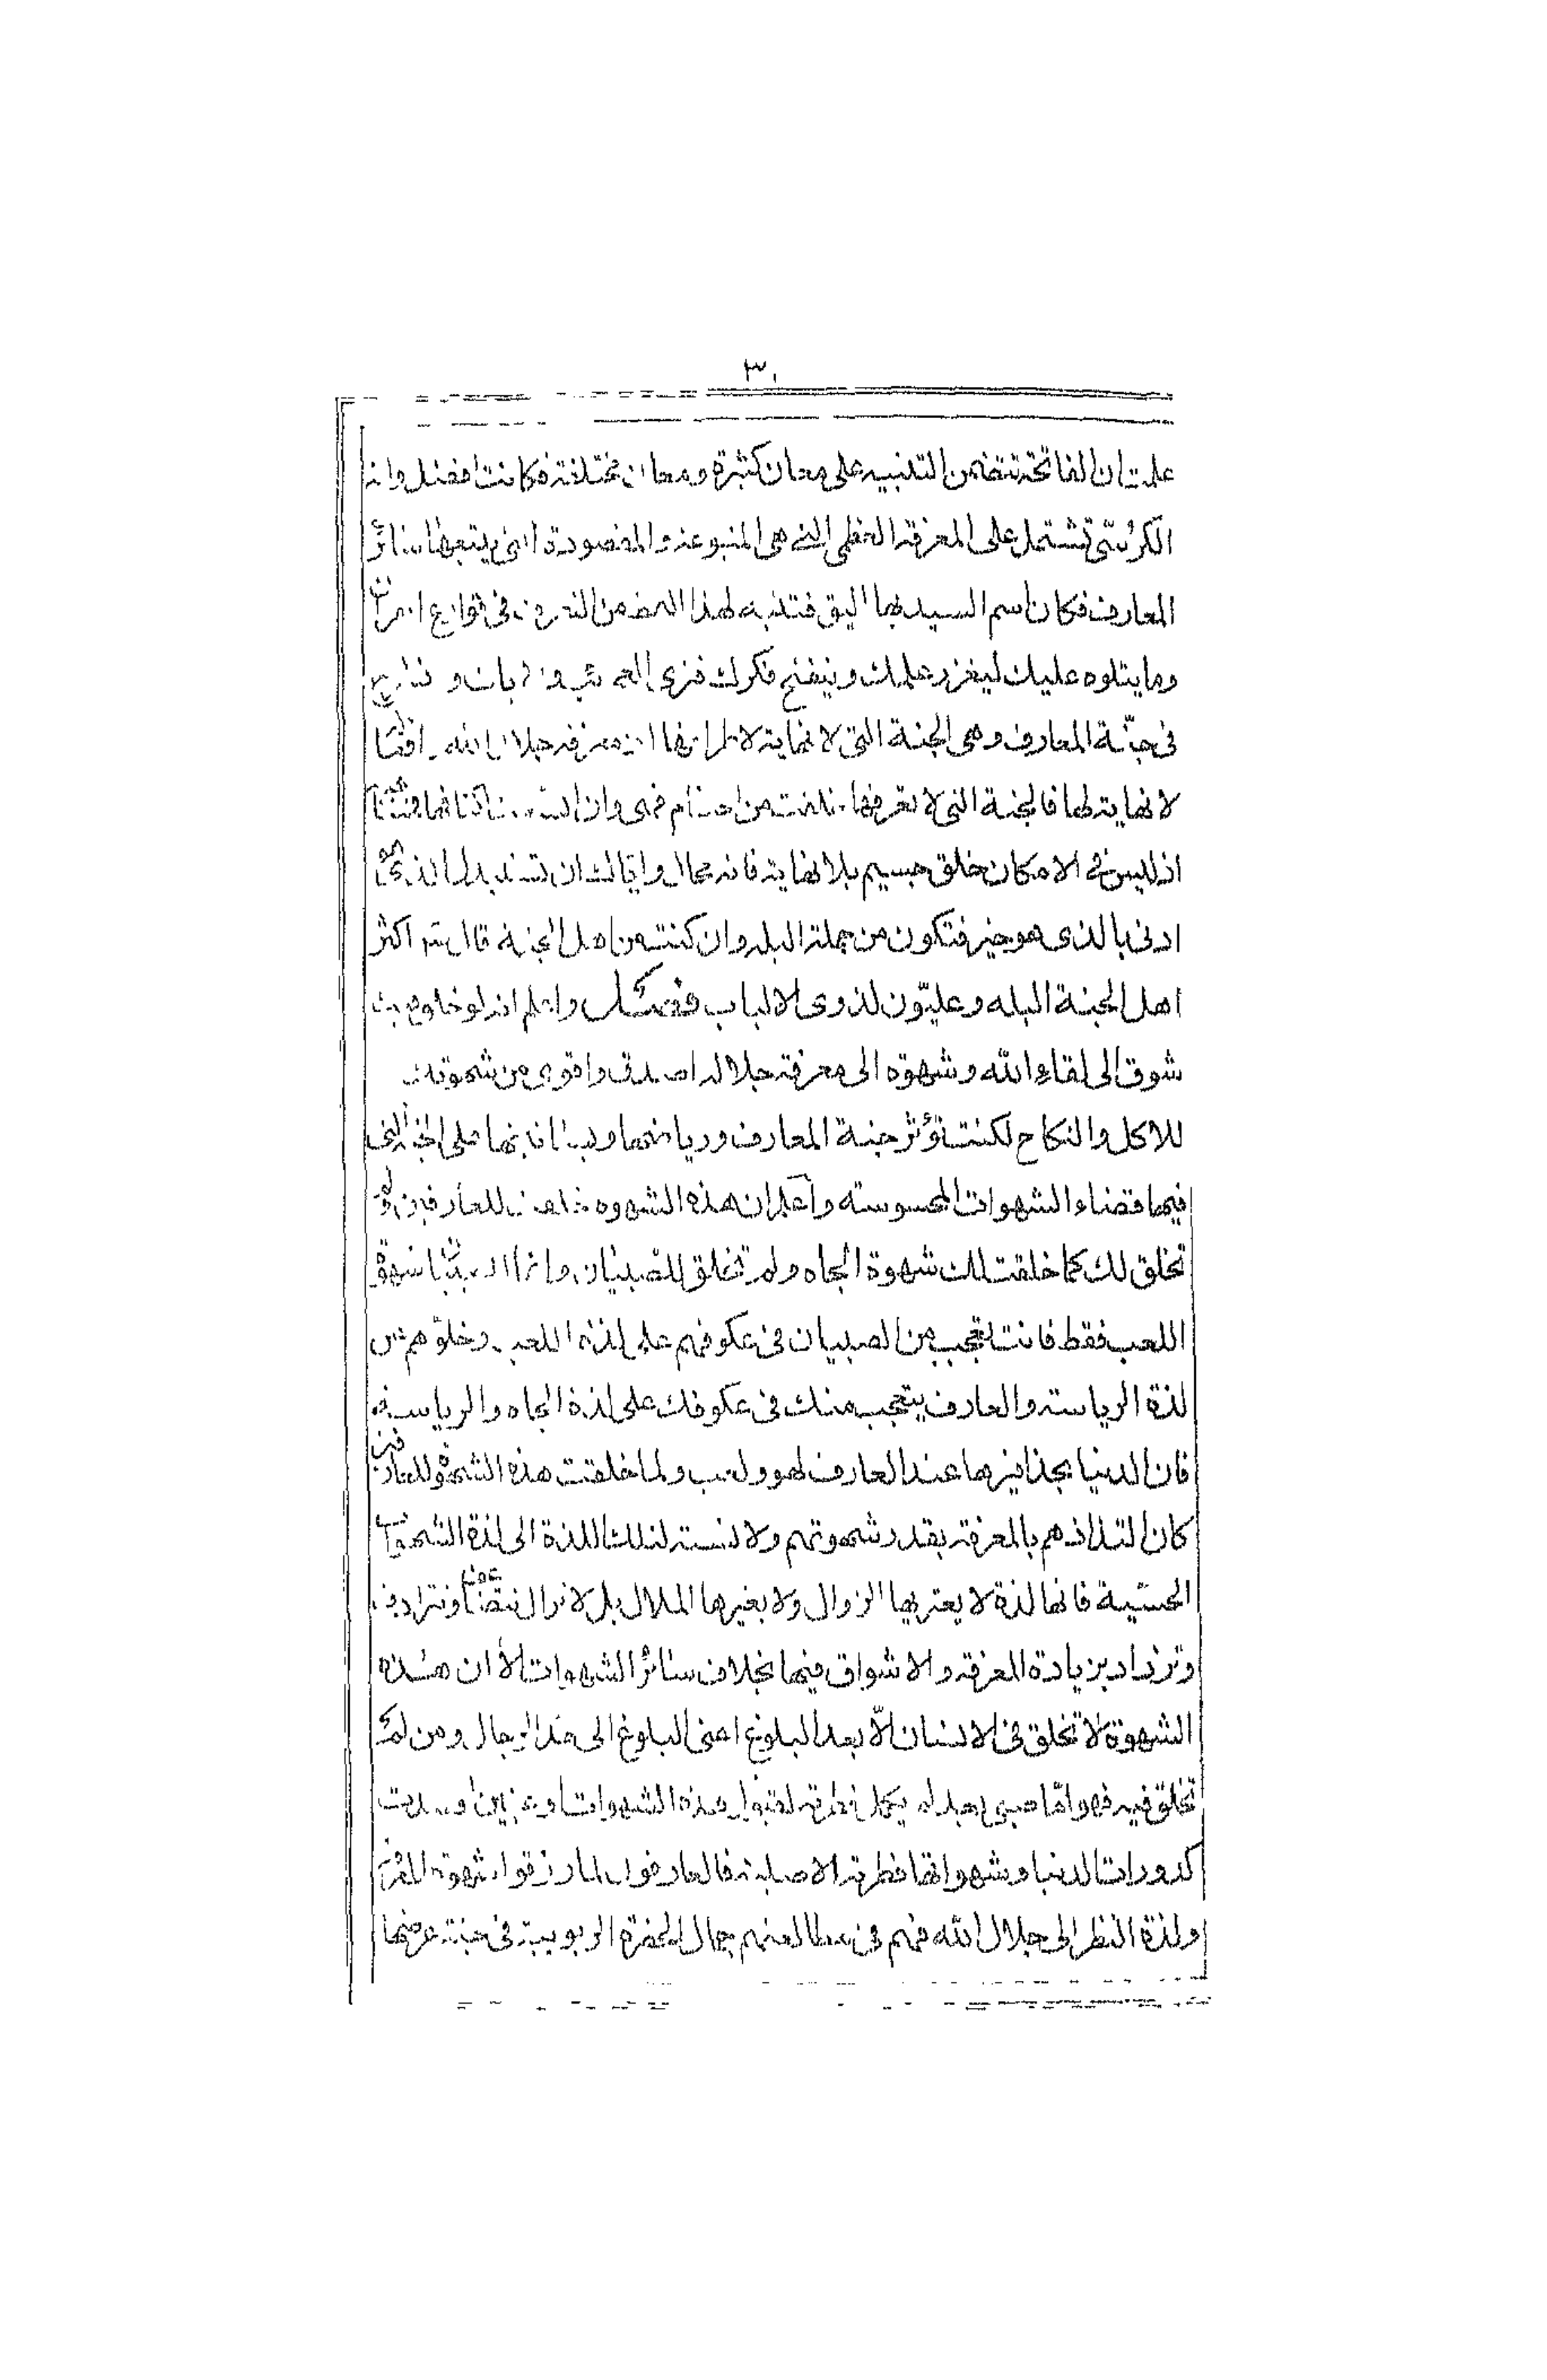 ٣٠
علمت ان الفاتحة تتضمن التنبيه على معان كثيرة ومعان مختلفة فكانت افضل واية
الكرسّى تشتمل على المعرفة العظمى التى هى المتبوعة والمقصودة التى يتبعها سائر
المعارف فكان اسم السيد بها اليق فتنبه لهذا النمط من التصرف فى قوارع القرآن
وما يتلوه عليك ليغزر علمك وينفتح فكرك فترى العجائب والآيات وتنشرح
فى جنّة المعارف وهى الجنة التى لا نهاية لاطرافها اذ معرفة جلال الله وافعاله
لا نهاية لها فالجنة التى لا تعرفها خلقت من اجسام فهى وان اتسعت اكنافها فمتناهية
اذ ليس فى الامكان خلق جسيم بلا نهاية فانه محال واياك ان تستبدل الذى هو
ادنى بالذى هو خير فتكون من جملة البله وان كنت من اهل الجنة قال اكثر
اهل الجنة البله وعليّون لذوى الالباب فصل واعلم انه لو خلق فيك
شوق الى لقاء الله وشهوة الى معرفة جلاله اصدق واقوى من شهوتك
للاكل والنكاح لكنت تؤثر جنة المعارف ورياضها وبساتينها على الجنة التى
فيها قضاء الشهوات المحسوسة واعلم ان هذه الشهوة خلقت للعارفين ولم
تخلق لك كما خلقت لك شهوة الجاه ولم تخلق للصبيان وانما للصبيان شهوة
اللعب فقط فانت تعجب من الصبيان فى عكوفهم على لذة اللعب وخلوّهم من
لذة الرياسة والعارف يتعجب منك فى عكوفك على لذة الجاه والرياسة
فان الدنيا بحذافيرها عند العارف لهو ولعب ولما خلقت هذه الشهوة للعارفين
كان التذاذهم بالمعرفة بقدر شهوتهم ولا نسبة لتلك اللذة الى لذة الشهوات
الحسّية فانها لذة لا يعتريها الزوال ولا يغيرها الملال بل لا تزال تتضاعف وتترادف
وتزداد بزيادة المعرفة والاشواق فيها بخلاف سائر الشهوات الا ان هذه
الشهوة لا تخلق فى الانسان الّا بعد البلوغ اعنى البلوغ الى حد الرجال ومن لم
تخلق فيه فهو امّا صبى بعد لم يكمل فطرته لقبول هذه الشهوات او عنين افسدت
كدورات الدنيا وشهواتها فطرته الاصلية فالعارفون لما رزقوا شهوة المعرفة
ولذة النظر الى جلال الله فهم فى مطالعتهم جمال الحضرة الربوبية فى جنة عرضها